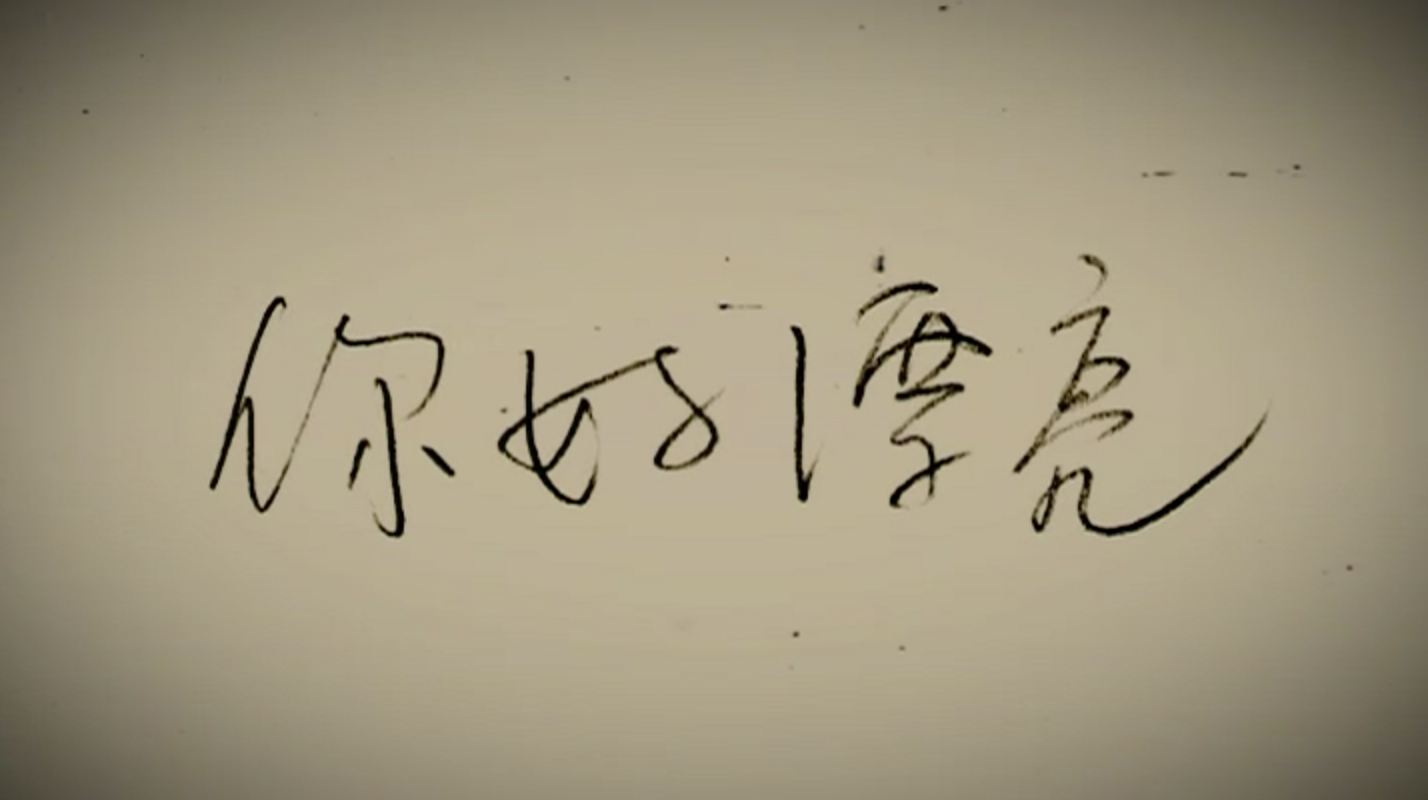 你好漂亮